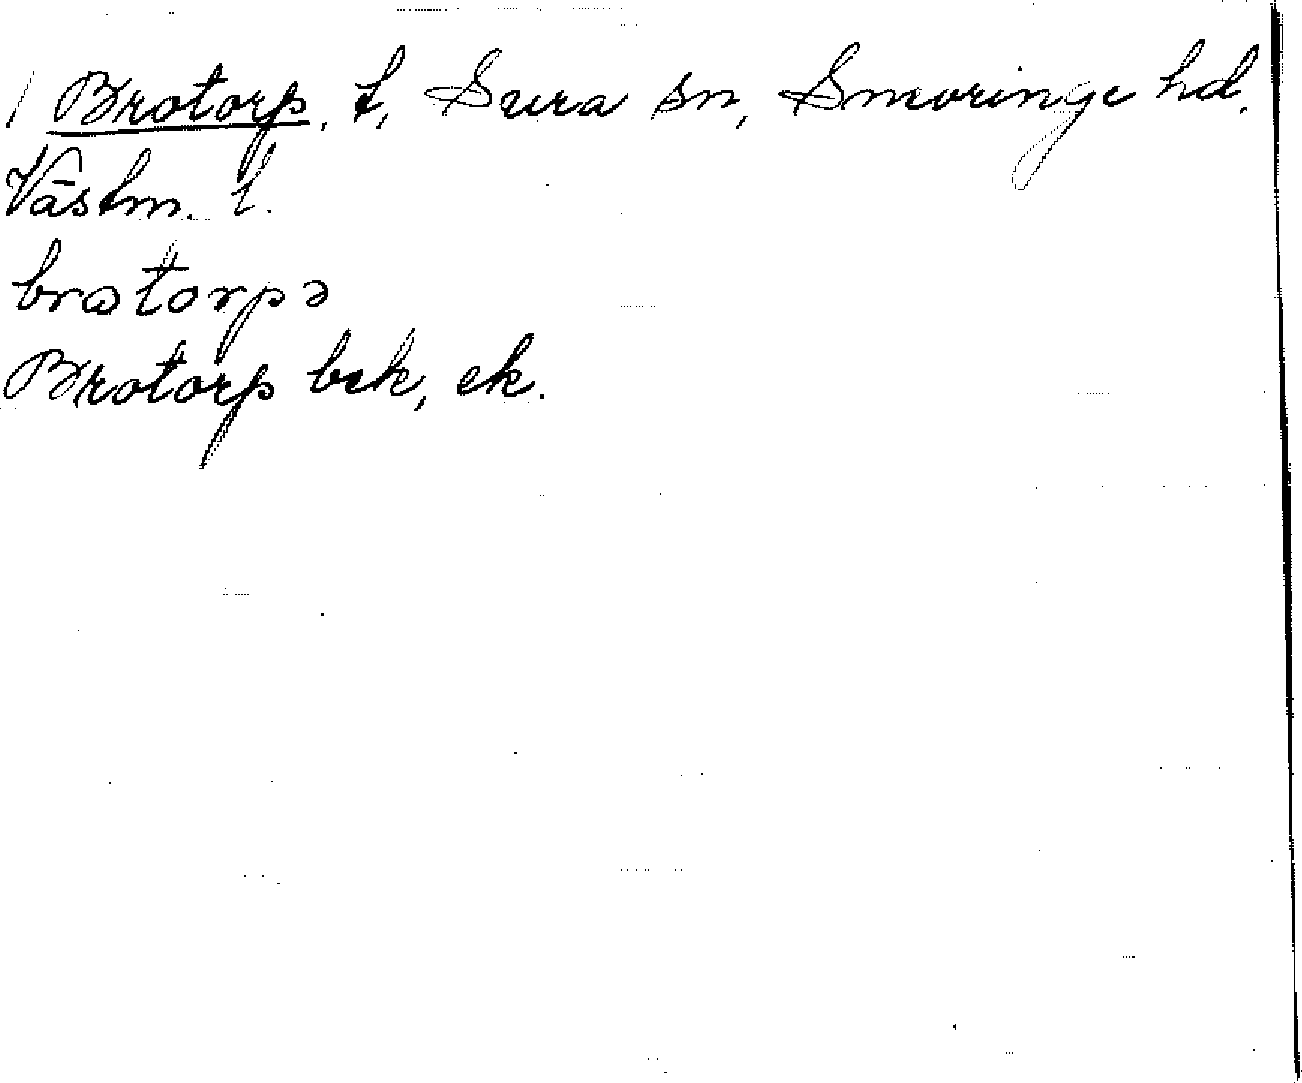 / Brotorp, t, Sura sn, Snevringe hd.
Västm. l.
brotorpə
Brotorp bek, ek.